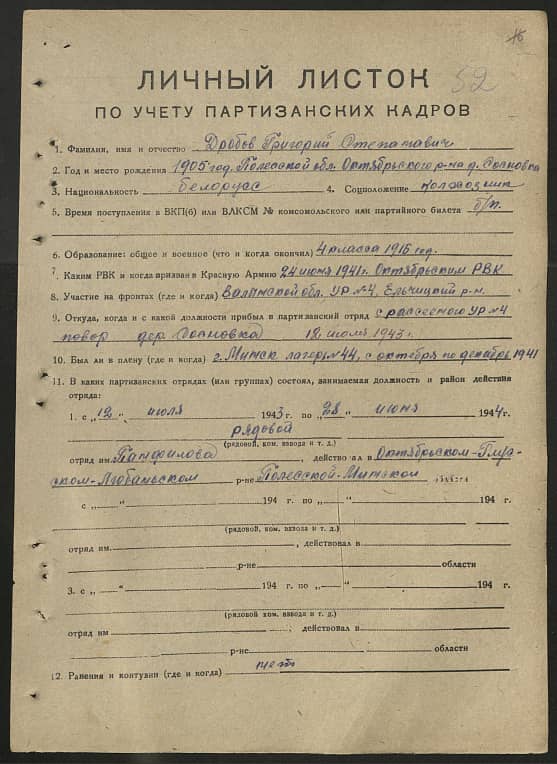 52
ЛИЧНЫЙ ЛИСТОК
ПО УЧЕТУ ПАРТИЗАНСКИХ КАДРОВ
1. Фамилия, имя и отчество Дробов Григорий Степанавич
2. Год и место рождения 1905 год. Полесской обл. Октябрьского р-на д. Сосновка
3. Национальность белорусс 4. Соцположение колхозник
5. Время поступления в ВКП(б) или ВЛКСМ № комсомольского или партийного билета б/п.
6. Образование: общее и военное (что и когда окончил) 4 класса 1916 год.
7. Каким РВК и когда призван в Красную Армию 24 июня 1941 г. Октябрьским РВК
8. Участие на фронтах (где и когда) Валынской обл. УР №4, р-н.
9. Откуда, когда и с какой должности прибыл в партизанский отряд с УР №4
повор дер. Сосновка 12 июля 1943 г.
10. Был ли в плену (где и когда) г. Минск лагерь №44, с октября по декабрь 1941
11. В каких партизанских отрядах (или группах) состоял, занимаемая должность и район действия
отряда:
1. с „12“ июля 1943 г. по „28“ июня 1944 г.
рядовой
(рядовой, ком. взвода и т. д.)
отряд им. Панфилова, действовал в Октябрьском-Глус-
ском-Любаньском р-не Полесской-Минской области
с „ “ 194 г. по „ “ 194 г.
(рядовой, ком. взвода и т. д.)
отряд им. , действовал в
р-не области
3. с „ “ 194 г. по „ “ 194 г.
(рядовой ком. взвода и т. д.)
отряд им , действовал в
р-не области
12. Ранения и контузии (где и когда) нет